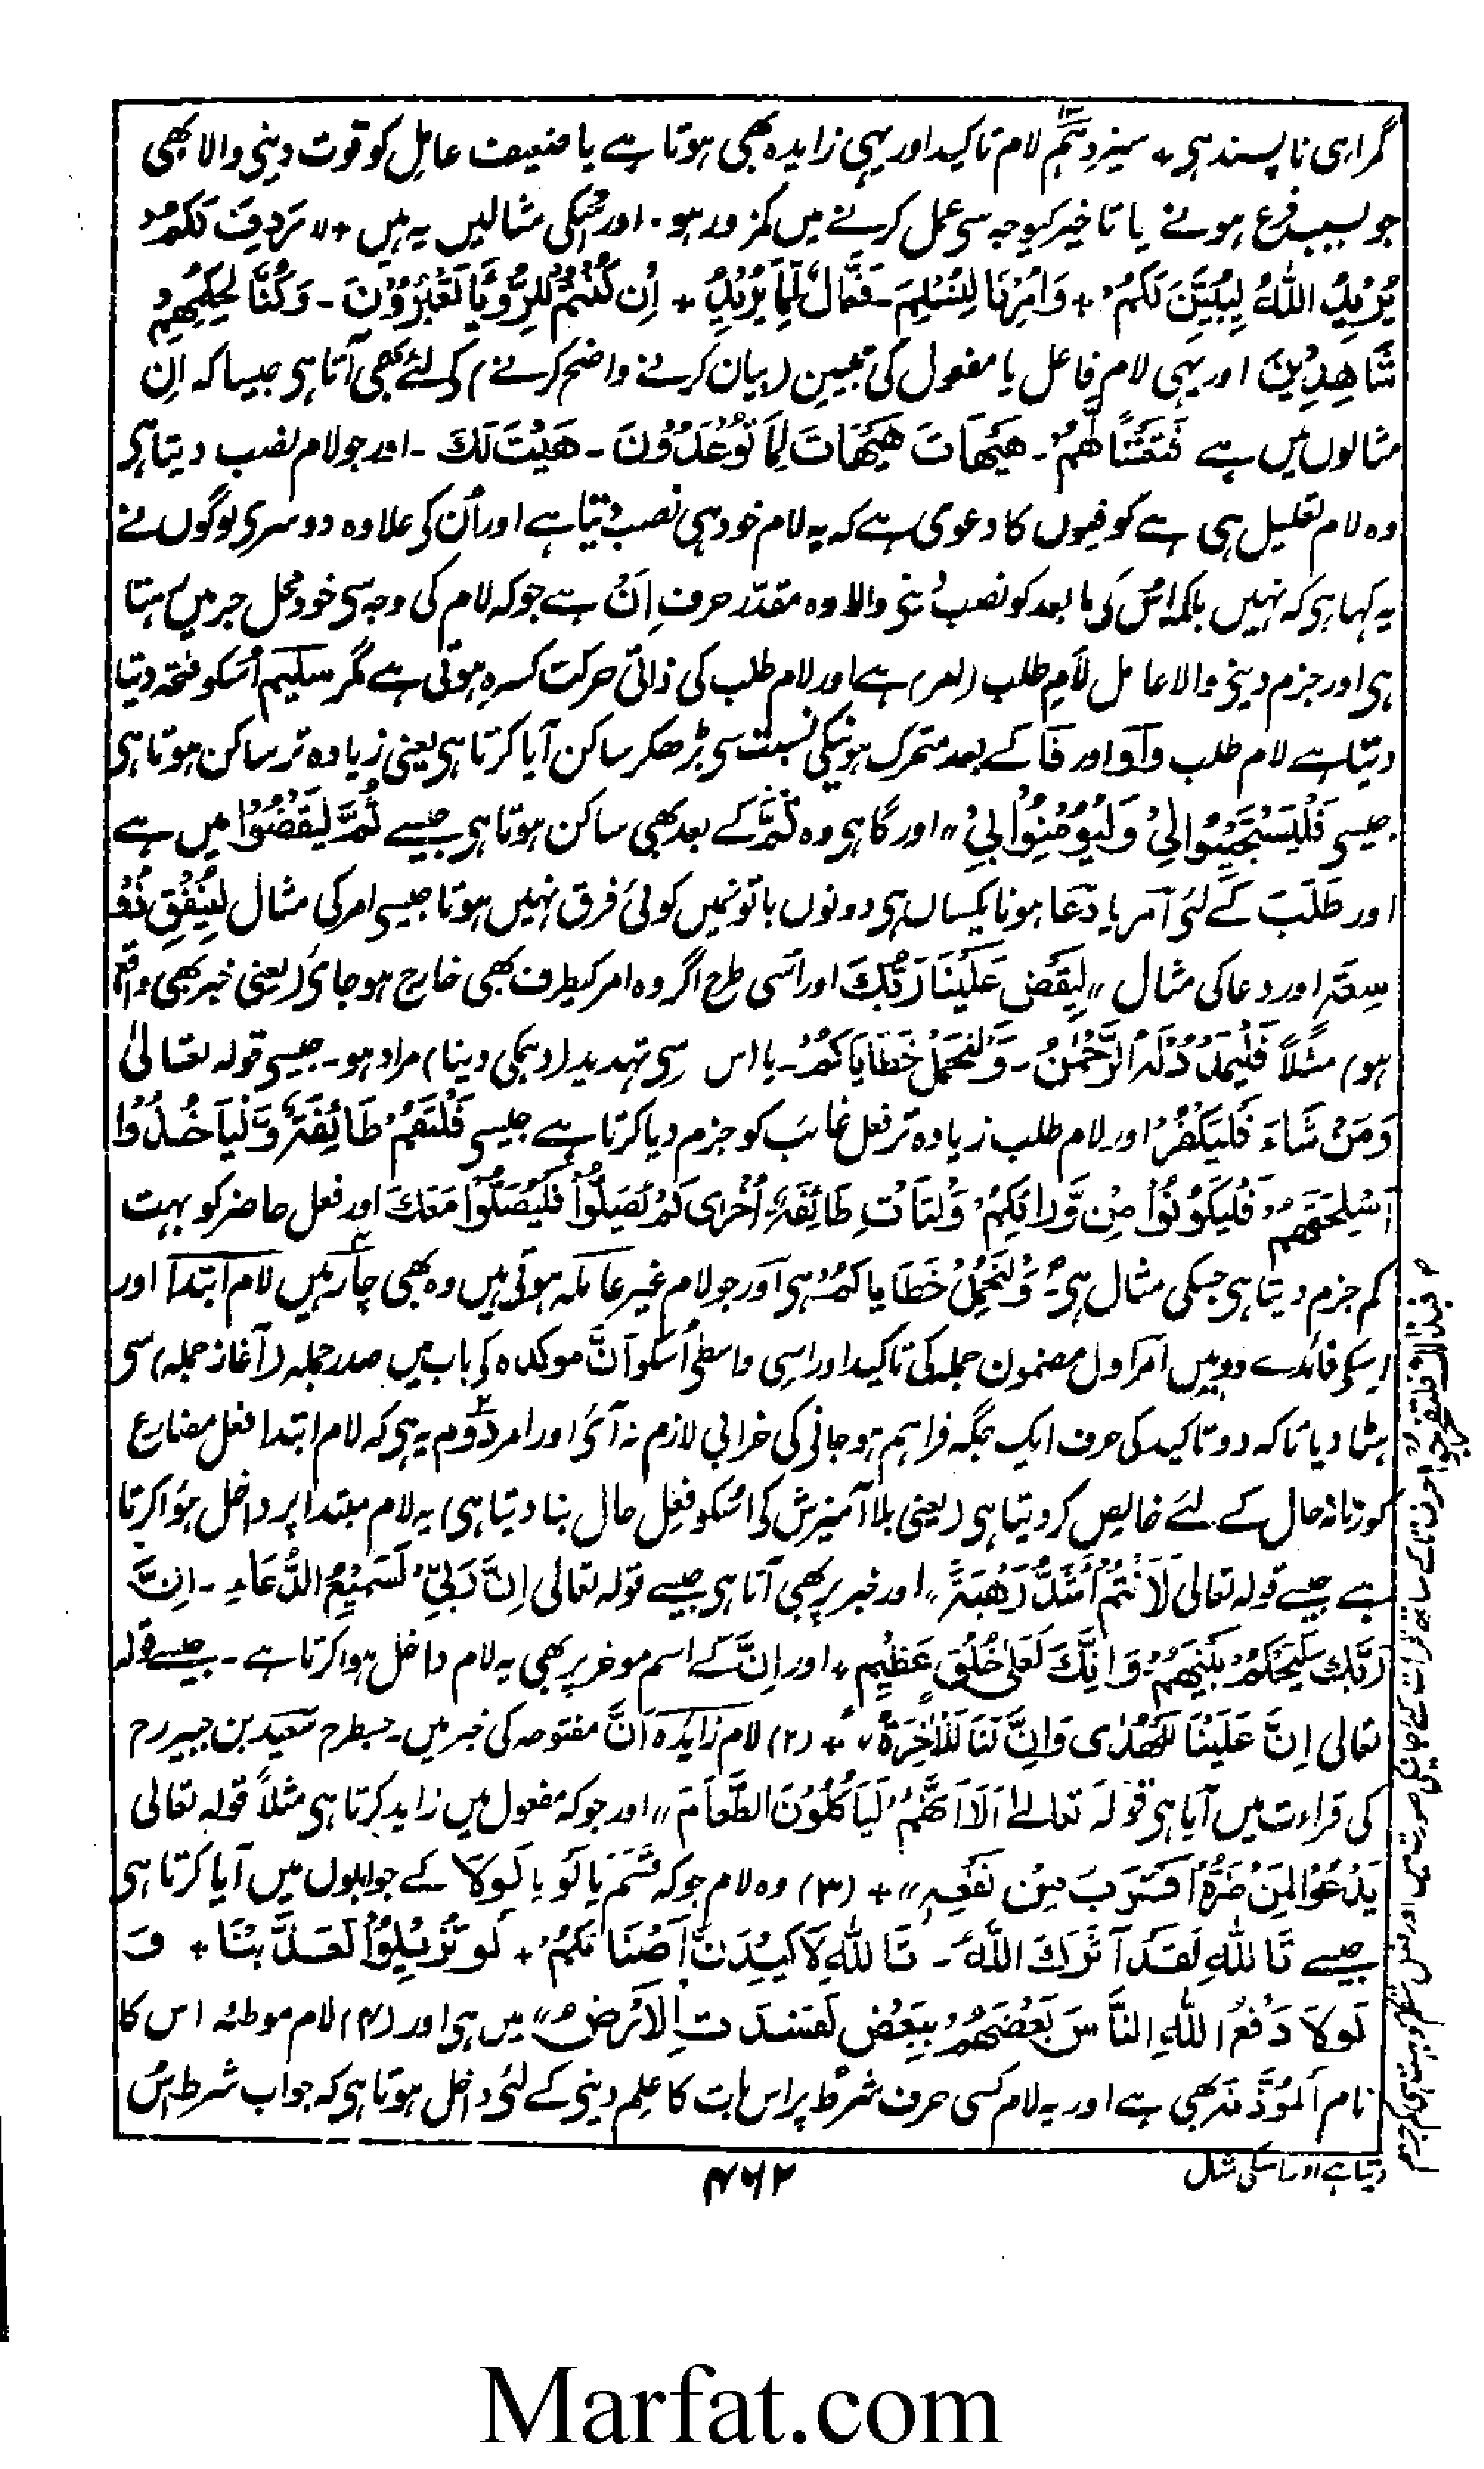 گمراہی ناپسند ہی + سیزدہم لام تاکید اور یہی زایدہ بھی ہوتا ہے یا ضعیف عامل کو قوت دینی والا بھی
جو بسبب فرع ہونے یا تاخیر کیوجہ سی عمل کرنے میں کمزور ہو ۔ اور جسکی مثالیں یہ ہیں + " رَدِفَ لَكُمْ
يُرِيْدُ اللّٰهُ لِيُبَيِّنَ لَكُمْ + وَاُمِرْنَا لِنُسْلِمَ ۔ فَعَّالٌ لِّمَا يُرِيْدُ + اِنْ كُنْتُمْ لِلرُّؤْيَا تَعْبُرُوْنَ ۔ وَكُنَّا لِحُكْمِهِمْ
شَاهِدِيْنَ اور یہی لام فاعل یا مفعول کی تبیین (بیان کرنے واضح کرنے) کے لئے بھی آتا ہی جیسا کہ اِن
مثالوں میں ہے فَتَعْسًا لَّهُمْ ۔ هَيْهَاتَ هَيْهَاتَ لِمَا تُوْعَدُوْنَ ۔ هَيْتَ لَكَ ۔ اور جو لام نصب دیتا ہی
وہ لام تعلیل ہی ہے کوفیوں کا دعوی ہے کہ یہ لام خود ہی نصب دیتا ہے اور اُن کی علاوہ دوسری لوگوں نے
یہ کہا ہی کہ نہیں بلکہ اسُ کی مابعد کو نصب دینی والا وہ مقدّر حرفِ اَنْ ہے جو کہ لام کی وجہ سی خود محل جر میں ہتا
ہی اور جزم دینی والا عامل لامِ طلب (امر) ہے اور لام طلب کی ذاتی حرکت کسرہ ہوتی ہے مگر سلیم اُسکو فتحہ دیتا
دیتا ہے لام طلب واو اور فا کے بعد متحرک ہونیکی نسبت سی بڑھکر ساکن آیا کرتا ہی یعنی زیادہ تر ساکن ہوتا ہی
جیسی فَلْيَسْتَجِيْبُوْا لِيْ وَلْيُؤْمِنُوْا بِيْ " اور گاہی وہ ثُمَّ کے بعد بھی ساکن ہوتا ہی جیسے ثُمَّ لْيَقْضُوْا میں ہے
اور طَلَبَ کے لئی اَمر یا دُعا ہونا یکساں ہی دونوں باتونمیں کوئی فرق نہیں ہوتا جیسی امر کی مثال لِيُنْفِقْ ذُوْ
سِعَةٍ اور دعا کی مثال " لِيَقْضِ عَلَيْنَا رَبُّكَ اور اُسی طرح اگر وہ امر کیطرف بھی خارج ہو جائی (یعنی خبر بھی واقع
ہو) مثلاً فَلْيَمْدُدْ لَهُ الرَّحْمٰنُ ۔ وَلْنَحْمِلْ خَطَايَاكُمْ ۔ یا اس سی تہدید (دہمکی دینا) مراد ہو ۔ جیسی قولہ تعالیٰ
وَمَنْ شَاءَ فَلْيَكْفُرْ اور لام طلب زیادہ تر فعل غائب کو جزم دیا کرتا ہے جیسی فَلْتَقُمْ طَائِفَةٌ وَّلْيَاْخُذُوْا
اَسْلِحَتَهُمْ فَلْيَكُوْنُوْا مِنْ وَّرَائِكُمْ وَلْتَاْتِ طَائِفَةٌ اُخْرٰى لَمْ يُصَلُّوْا فَلْيُصَلُّوْا مَعَكَ اور فعل حاضر کو بہت
کم جزم دیتا ہی جسکی مثال ہی وَلْنَحْمِلْ خَطَايَاكُمْ ہی اور جو لام غیر عاملہ ہوتی ہیں وہ بھی چار ہیں لام ابتدا اور
اسکی فائدے دو ہیں امر اول مضمون جملہ کی تاکید اور اسی واسطی اُسکو اِنَّ موکدہ کی باب میں صدر جملہ (آغاز جملہ) سی
ہٹا دیا تاکہ دو تاکید کی حرف ایک جگہ فراہم ہو جانی کی خرابی لازم نہ آئی اور امر دوم یہ ہی کہ لام ابتدا فعل مضارع
کو زمانۂ حال کے لئے خالص کر دیتا ہی (یعنی بلا آمیزش کی اسُکو فعلِ حال بنا دیتا ہی) یہ لام مبتدا پر داخل ہوا کرتا
ہے جیسے قولہ تعالیٰ لَاَنْتُمْ اَشَدُّ رَهْبَةً " اور خبر پر بھی آتا ہی جیسے قولہ تعالی اِنَّ رَبِّيْ لَسَمِيْعُ الدُّعَاءِ ۔ اِنَّ
رَبَّكَ لَيَحْكُمُ بَيْنَهُمْ وَاِنَّكَ لَعَلٰى خُلُقٍ عَظِيْمٍ + اور اِنَّ کے اسم موخر پر بھی یہ لام داخل ہوا کرتا ہے ۔ جیسے قولہ
تعالی اِنَّ عَلَيْنَا لَلْهُدٰى وَاِنَّ لَنَا لَلْاٰخِرَةَ " + (۲) لام زایدہ اَنَّ مفتوحہ کی خبر میں ۔ جسطرح سعید بن جبیر رح
کی قراءت میں آیا ہی قولہ تعالےٰ اَلَا اَنَّهُمْ لَيَاْكُلُوْنَ الطَّعَامَ " اور جو کہ مفعول میں زاید کرتا ہی مثلاً قولہ تعالی
يَدْعُوْا لَمَنْ ضَرُّهٗ اَقْرَبُ مِنْ نَّفْعِهٖ " + (۳) وہ لام جو کہ قسَم یا لَو یا لَولا کے جوابوں میں آیا کرتا ہی
جیسے تَاللّٰهِ لَقَدْ اٰثَرَكَ اللّٰهُ ۔ تَاللّٰهِ لَاَكِيْدَنَّ اَصْنَامَكُمْ + لَوْ تَزَيَّلُوْا لَعَذَّبْنَا + وَ
لَوْلَا دَفْعُ اللّٰهِ النَّاسَ بَعْضَهُمْ بِبَعْضٍ لَّفَسَدَتِ الْاَرْضُ " میں ہی اور (۴) لام موطئہ اس کا
نام اَلمُؤَذِّنہ بھی ہے اور یہ لام کسی حرف شرط پر اس بات کا علم دینی کے لئی داخل ہوتا ہی کہ جواب شرط اسُ
۴۶۲
دیتا ہے اور اسکی مثال
Marfat.com